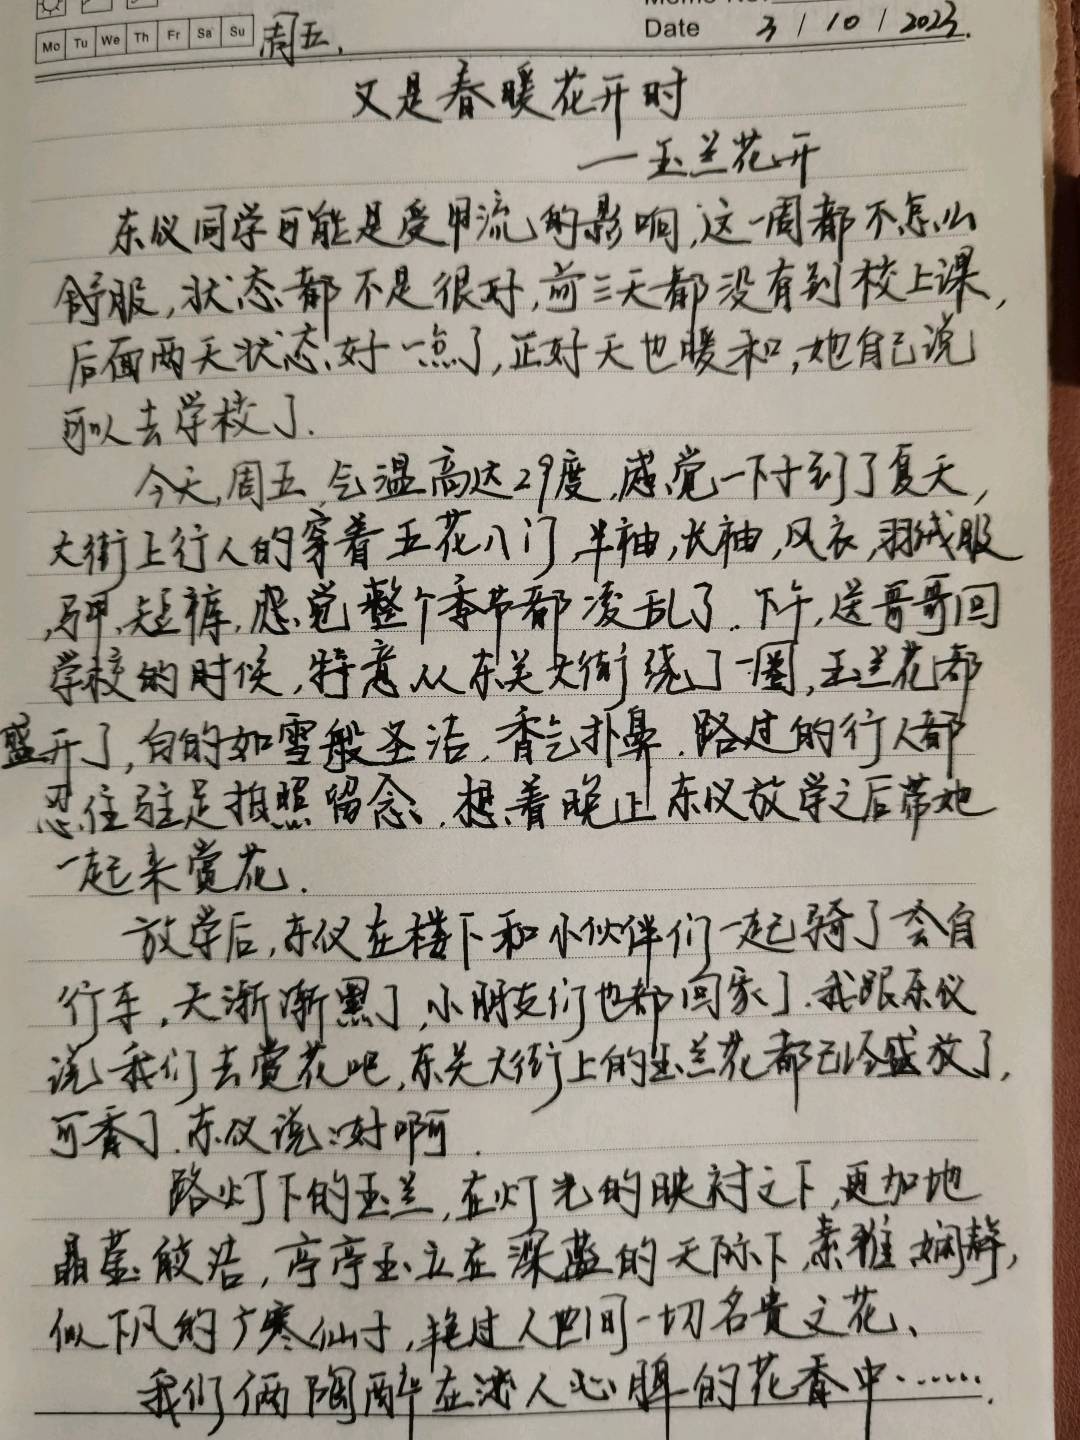 Memo No.
Mo Tu We Th Fr Sa Su 周五.
Date 3 / 10 / 2023.
又是春暖花开时
——玉兰花开
东仪同学可能是受甲流的影响,这一周都不怎么
舒服,状态都不是很好,前三天都没有到校上课,
后面两天状态好一点了,正好天也暖和,她自己说
可以去学校了.
今天,周五,气温高达29度,感觉一下子到了夏天,
大街上行人的穿着五花八门,半袖,长袖,风衣,羽绒服
,马甲,短裤,感觉整个季节都凌乱了.下午,送哥哥回
学校的时候,特意从东关大街绕了一圈,玉兰花都
盛开了,白的如雪般圣洁,香气扑鼻.路过的行人都
忍住驻足拍照留念.想着晚上东仪放学之后带她
一起来赏花.
放学后,东仪在楼下和小伙伴们一起骑了会自
行车,天渐渐黑了,小朋友们也都回家了.我跟东仪
说我们去赏花吧,东关大街上的玉兰花都已经盛放了,
可香了.东仪说:好啊.
路灯下的玉兰,在灯光的映衬之下,更加地
晶莹皎洁,亭亭玉立在深蓝的天际下,素雅娴静,
似下凡的广寒仙子,艳过人世间一切名贵之花、
我们俩陶醉在沁人心脾的花香中…….